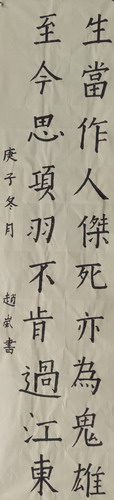 生當作人傑死亦為鬼雄
至今思項羽不肯過江東
庚子冬月 趙嵐書